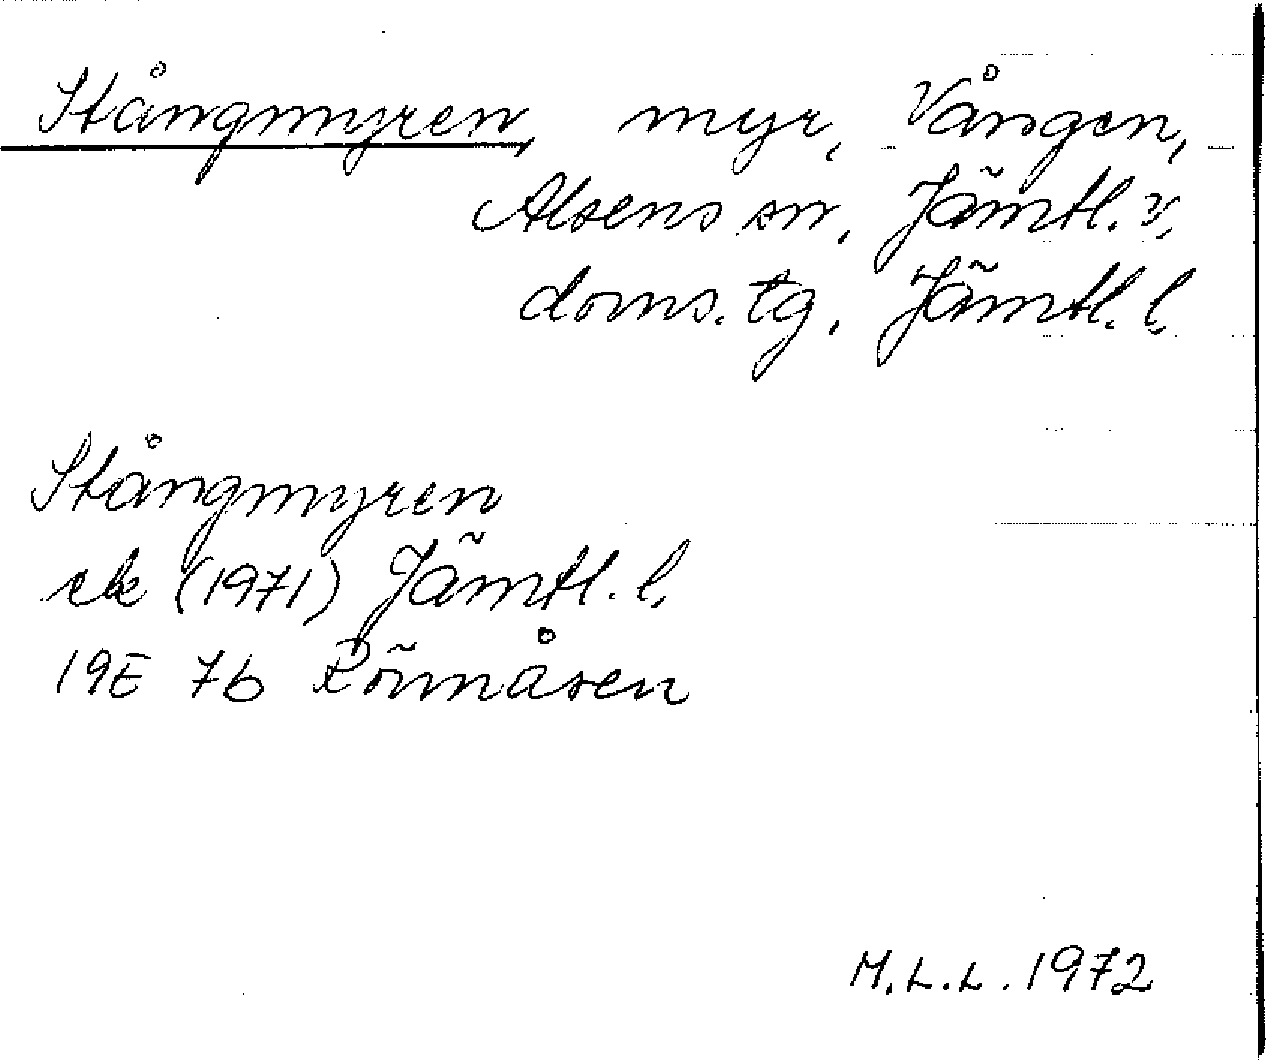 Stångmyren, myr, Vången,
Alsens sn, Jämtl. v.
doms. tg, Jämtl. l.
Stångmyren
ek (1971) Jämtl. l.
19E 7b Rönnåsen
M.L.L. 1972